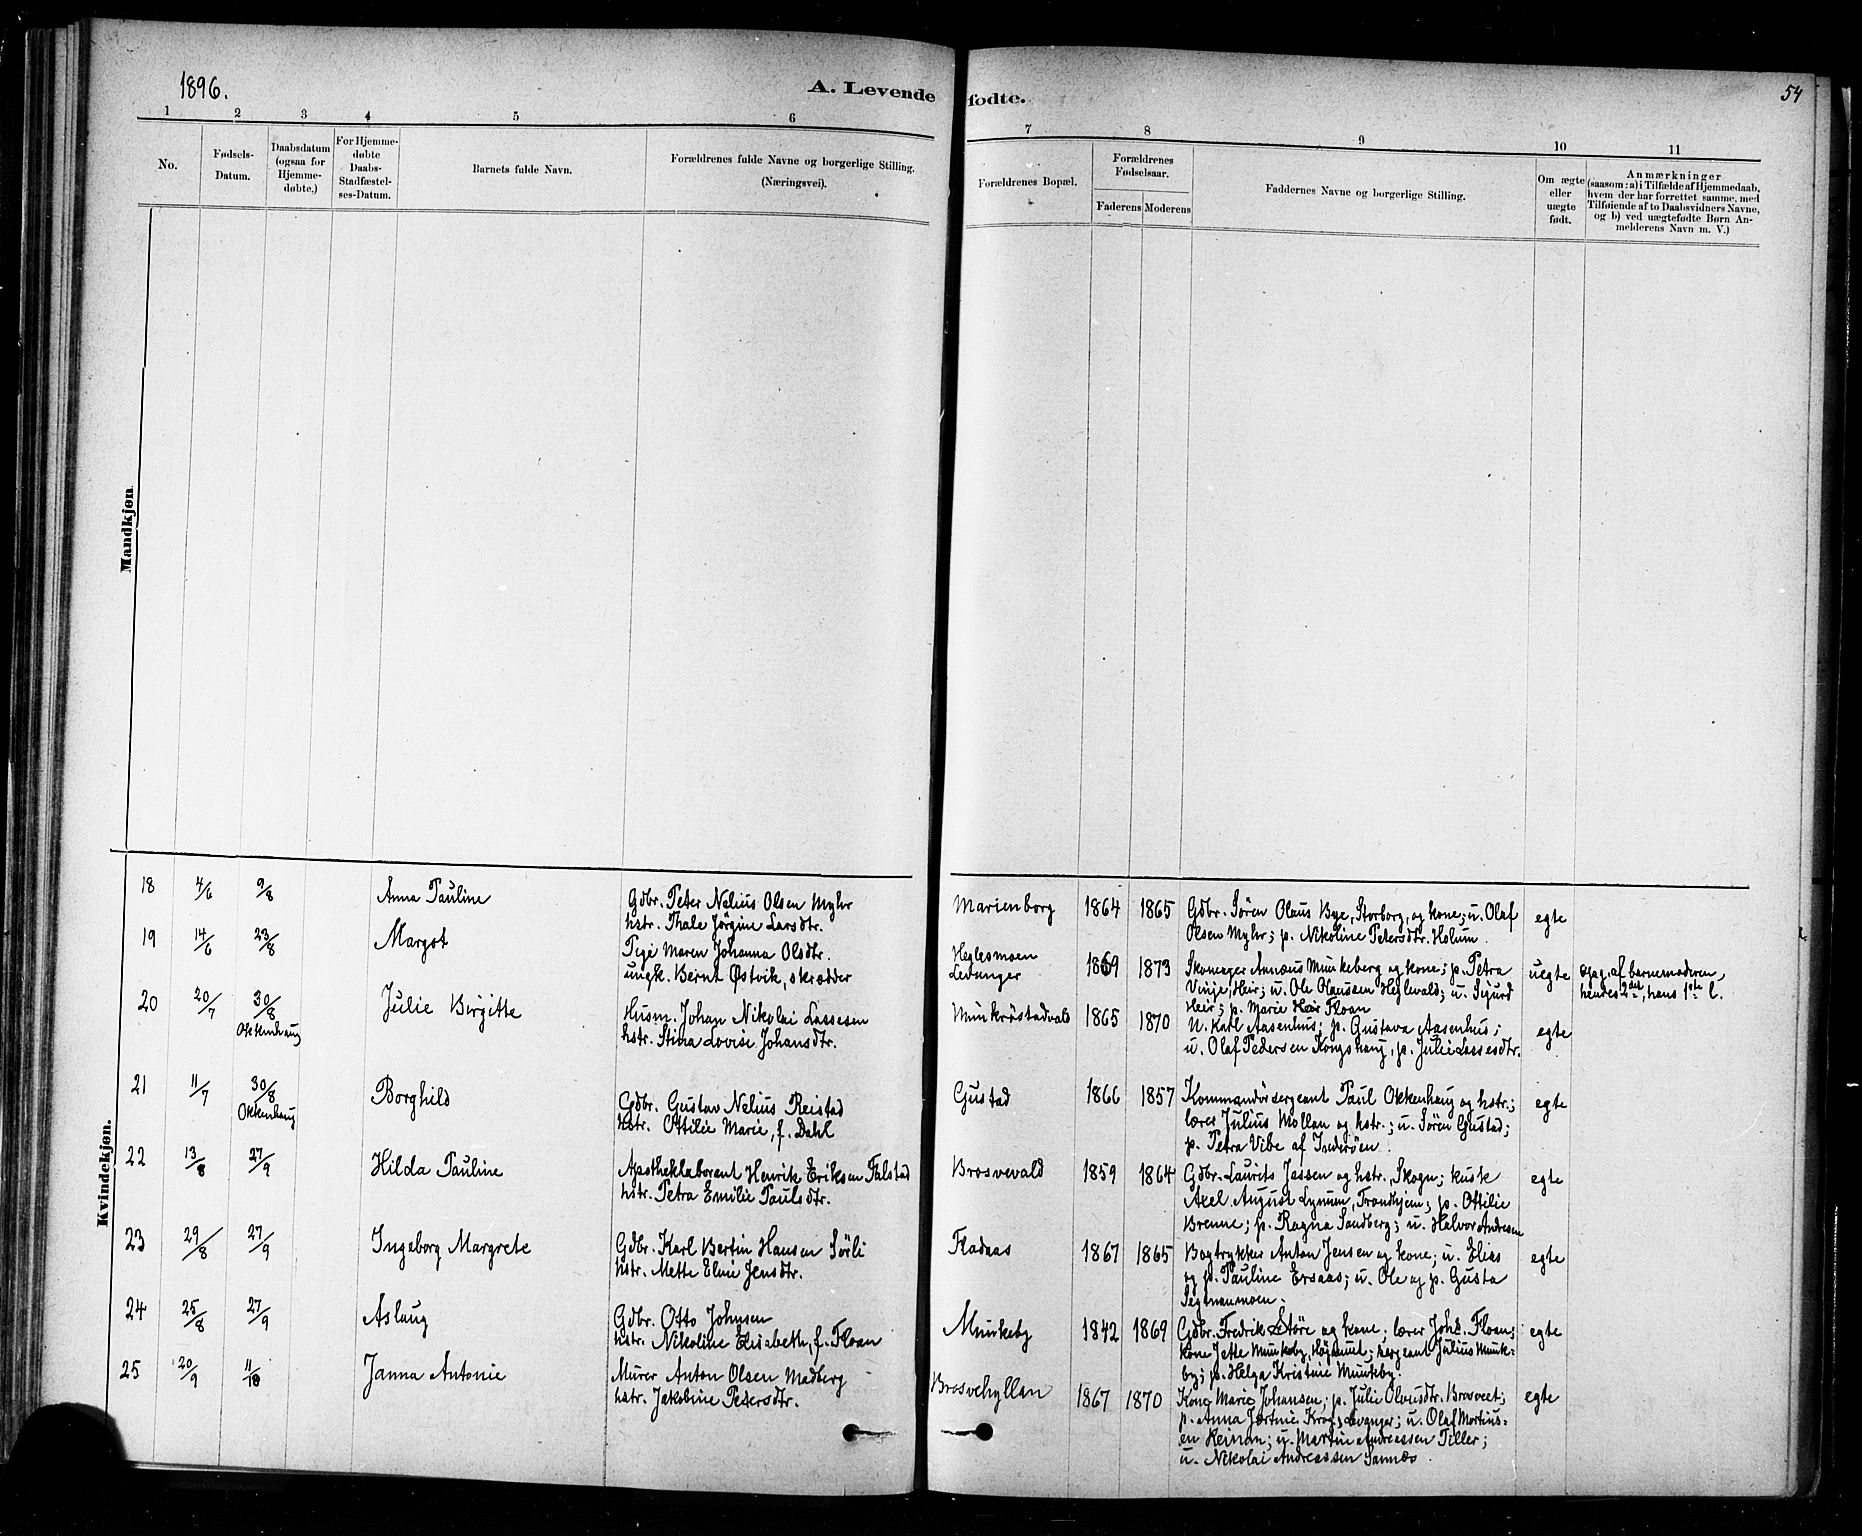 1896.
A. Levende
fødte.
54
1 2 3 4 5 6
7 8 9 10 11
No.
Fødsels-
Datum.
Daabsdatum
(ogsaa for
Hjemme-
døbte.)
For Hjemme-
døbte
Daabs-
Stadfæstel-
ses-Datum.
Barnets fulde Navn.
Forældrenes fulde Navne og borgerlige Stilling.
(Næringsvei).
Forældrenes Bopæl.
Forældrenes
Fødselsaar.
Faderens Moderens
Faddernes Navne og borgerlige Stilling.
Om ægte
eller
uægte
født.
Anmærkninger
(saasom: a) i Tilfælde af Hjemmedaab,
hvem der har forrettet samme, med
Tilføiende af to Daabsvidners Navne,
og b) ved uægtefødte Børn An-
melderens Navn m. V.)
Mandkjøn
Kvindekjøn.
18 4/6 9/8 Anna Pauline
Gdbr. Peter Nelius Olsen Myhr
hstr. Thale Jørgine Larsdtr.
Marienborg 1864 1865
Gdbr. Søren Olaus Bye, Storborg, og kone; u. Olaf
Olsen Myhr; p. Nikoline Petersdtr. Holum.
egte
19 14/6 23/8 Margot
Pige Maren Johanna Olsdtr.
ungk. Bernt Østvik, skrædder
Heglesmoen
Levanger
1869 1873
Skomager Annæus Munkeberg og kone; p. Petra
Vinje, Heir; u. Ole Olaussen Heglevald; u. Sigurd
Heir; p. Marie Heir Floan
uegte
opg. af barnemoderen,
hendes 2det, hans 1ste l.
20 20/7 30/8
Okkenhaug
Julie Birgitte
Husm. Johan Nikolai Lassesen
hstr. Stina Lovise Johansdtr.
Munkrøstadvald 1865 1870
U. Karl Aasenhus; p. Gustava Aasenhus;
u. Olaf Pedersen Kongshaug, p. Julie Lassesdtr.
egte
21 11/7 30/8
Okkenhaug
Borghild
Gdbr. Gustav Nelius Reistad
hstr. Ottilie Marie, f. Dahl
Gustad 1866 1857
Kommandørsergeant Paul Okkenhaug og hstr.;
lærer Julius Mollan og hstr.; u. Søren Gustad;
p. Petra Vibe af Inderøen.
egte
22 13/8 27/9 Hilda Pauline
Apotheklaborant Henrik Eriksen Falstad
hstr. Petra Emilie Paulsdtr.
Brosvevald 1859 1864
Gdbr. Laurits Jassen og hstr., Skogn; kusk
Axel August Lynum, Trondhjem; p. Ottilie
Brenne; p. Ragna Sandberg; u. Halvor Andresen
egte
23 29/8 27/9 Ingeborg Margrete
Gdbr. Karl Bertin Hansen Sørli
hstr. Mette Eline Jensdtr.
Fladaas 1867 1865
Bogtrykker Anton Jensen og kone; u. Elias
og p. Pauline Ersaas; u. Ole og p. Gusta
Segtnanmoen.
egte
24 25/8 27/9 Aslaug
Gdbr. Otto Johnsen
hstr. Nikoline Elisabeth, f. Floan
Munkeby 1842 1869
Gdbr. Fredrik Støre og kone; lærer Johs. Floan;
kone Jette Munkeby, Høgmut; sergeant Julius Munk-
by; p. Helga Kristine Munkeby.
egte
25 20/9 11/10 Janna Antonie
Murer Anton Olsen Madberg
hstr. Jakobine Pedersdtr.
Brosvehyllan 1867 1870
Kone Marie Johansen; p. Julie Olausdtr. Brosveet;
p. Anna Jørtine Krog, Levanger; u. Olaf Mortins-
en Reinan; u. Martin Andreassen Tiller;
u. Nikolai Andreassen Sannæs.
egte